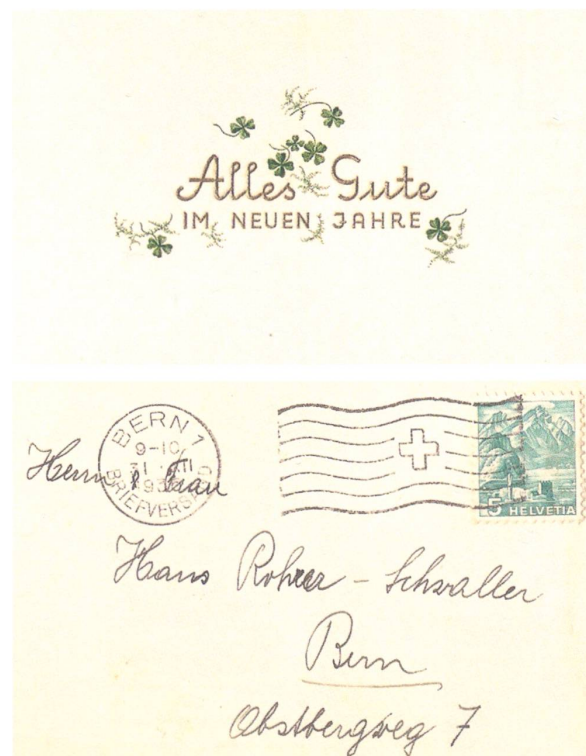 Alles Gute
IM NEUEN JAHRE
BERN 1
9-10
31
BRIEFVERSAND
5 HELVETIA
Herrn & Frau
Hans Rohrer - Schwaller
Bern
Obstbergweg 7